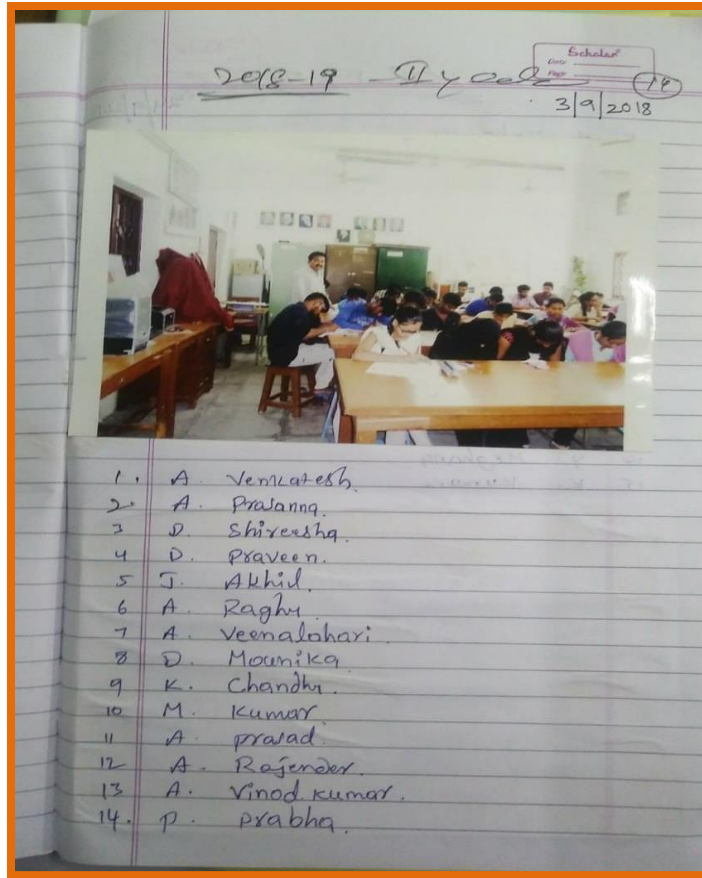 Scholar
Date
Page
2018-19 - II year
19
3/9/2018
1. A. Venkatesh
2. A. Prasanna.
3 D. Shireesha.
4 D. Praveen.
5 J. Akhil.
6 A. Raghu.
7 A. Veenalahari.
8 D. Mounika.
9 K. Chandhu.
10 M. Kumar.
11 A. prasad.
12 A. Rajender.
13 A. Vinod kumar.
14. P. Prabha.